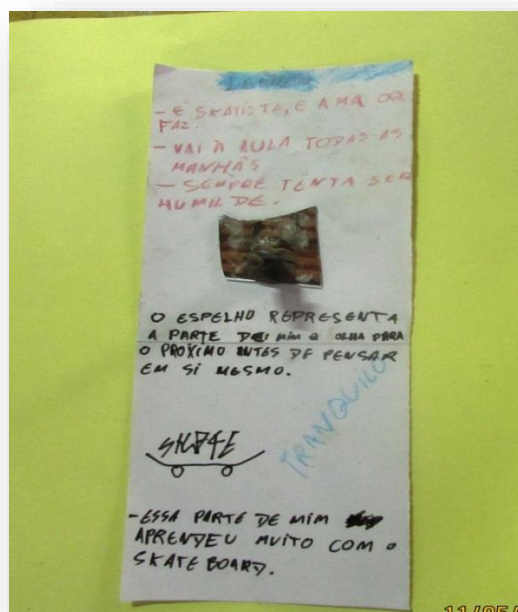 - É SKATISTE, E AMA OQ
FAZ.
- VAI A AULA TODAS AS
MANHÃS
- SEMPRE TENTA SER
HUMILDE.
O ESPELHO REPRESENTA
A PARTE DE MIM Q OLHA PARA
O PROXIMO ANTES DE PENSAR
EM SÍ MESMO.
TRANQUILO
SKATE
- ESSA PARTE DE MIM
APRENDEU MUITO COM O
SKATEBOARD.